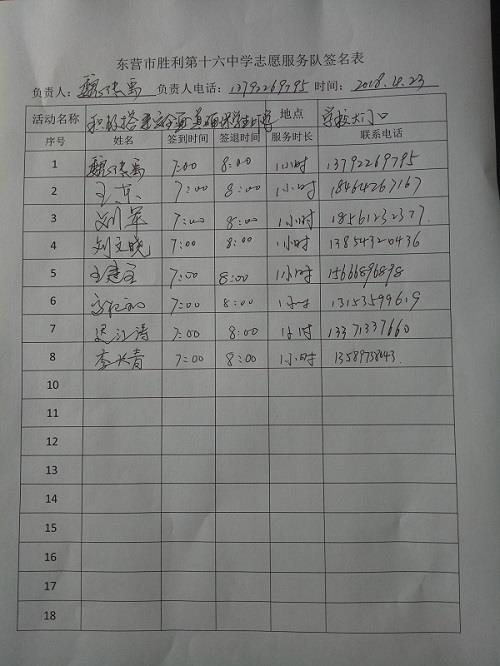 东营市胜利第十六中学志愿服务队签名表
负责人: 负责人电话: 13792269795 时间: 2018.4.23
活动名称 地点 学校大门口
序号 姓名 签到时间 签退时间 服务时长 联系电话
1 7:00 8:00 1小时 13792269795
2 王东 7:00 8:00 1小时 18464267167
3 刘军 7:00 8:00 1小时 18561232377
4 刘文晓 7:00 8:00 1小时 13854320436
5 7:00 8:00 1小时 15666896898
6 7:00 8:00 1小时 13153599619
7 迟江涛 7:00 8:00 1小时 13371337660
8 李兴青 7:00 8:00 1小时
10
11
12
13
14
15
16
17
18